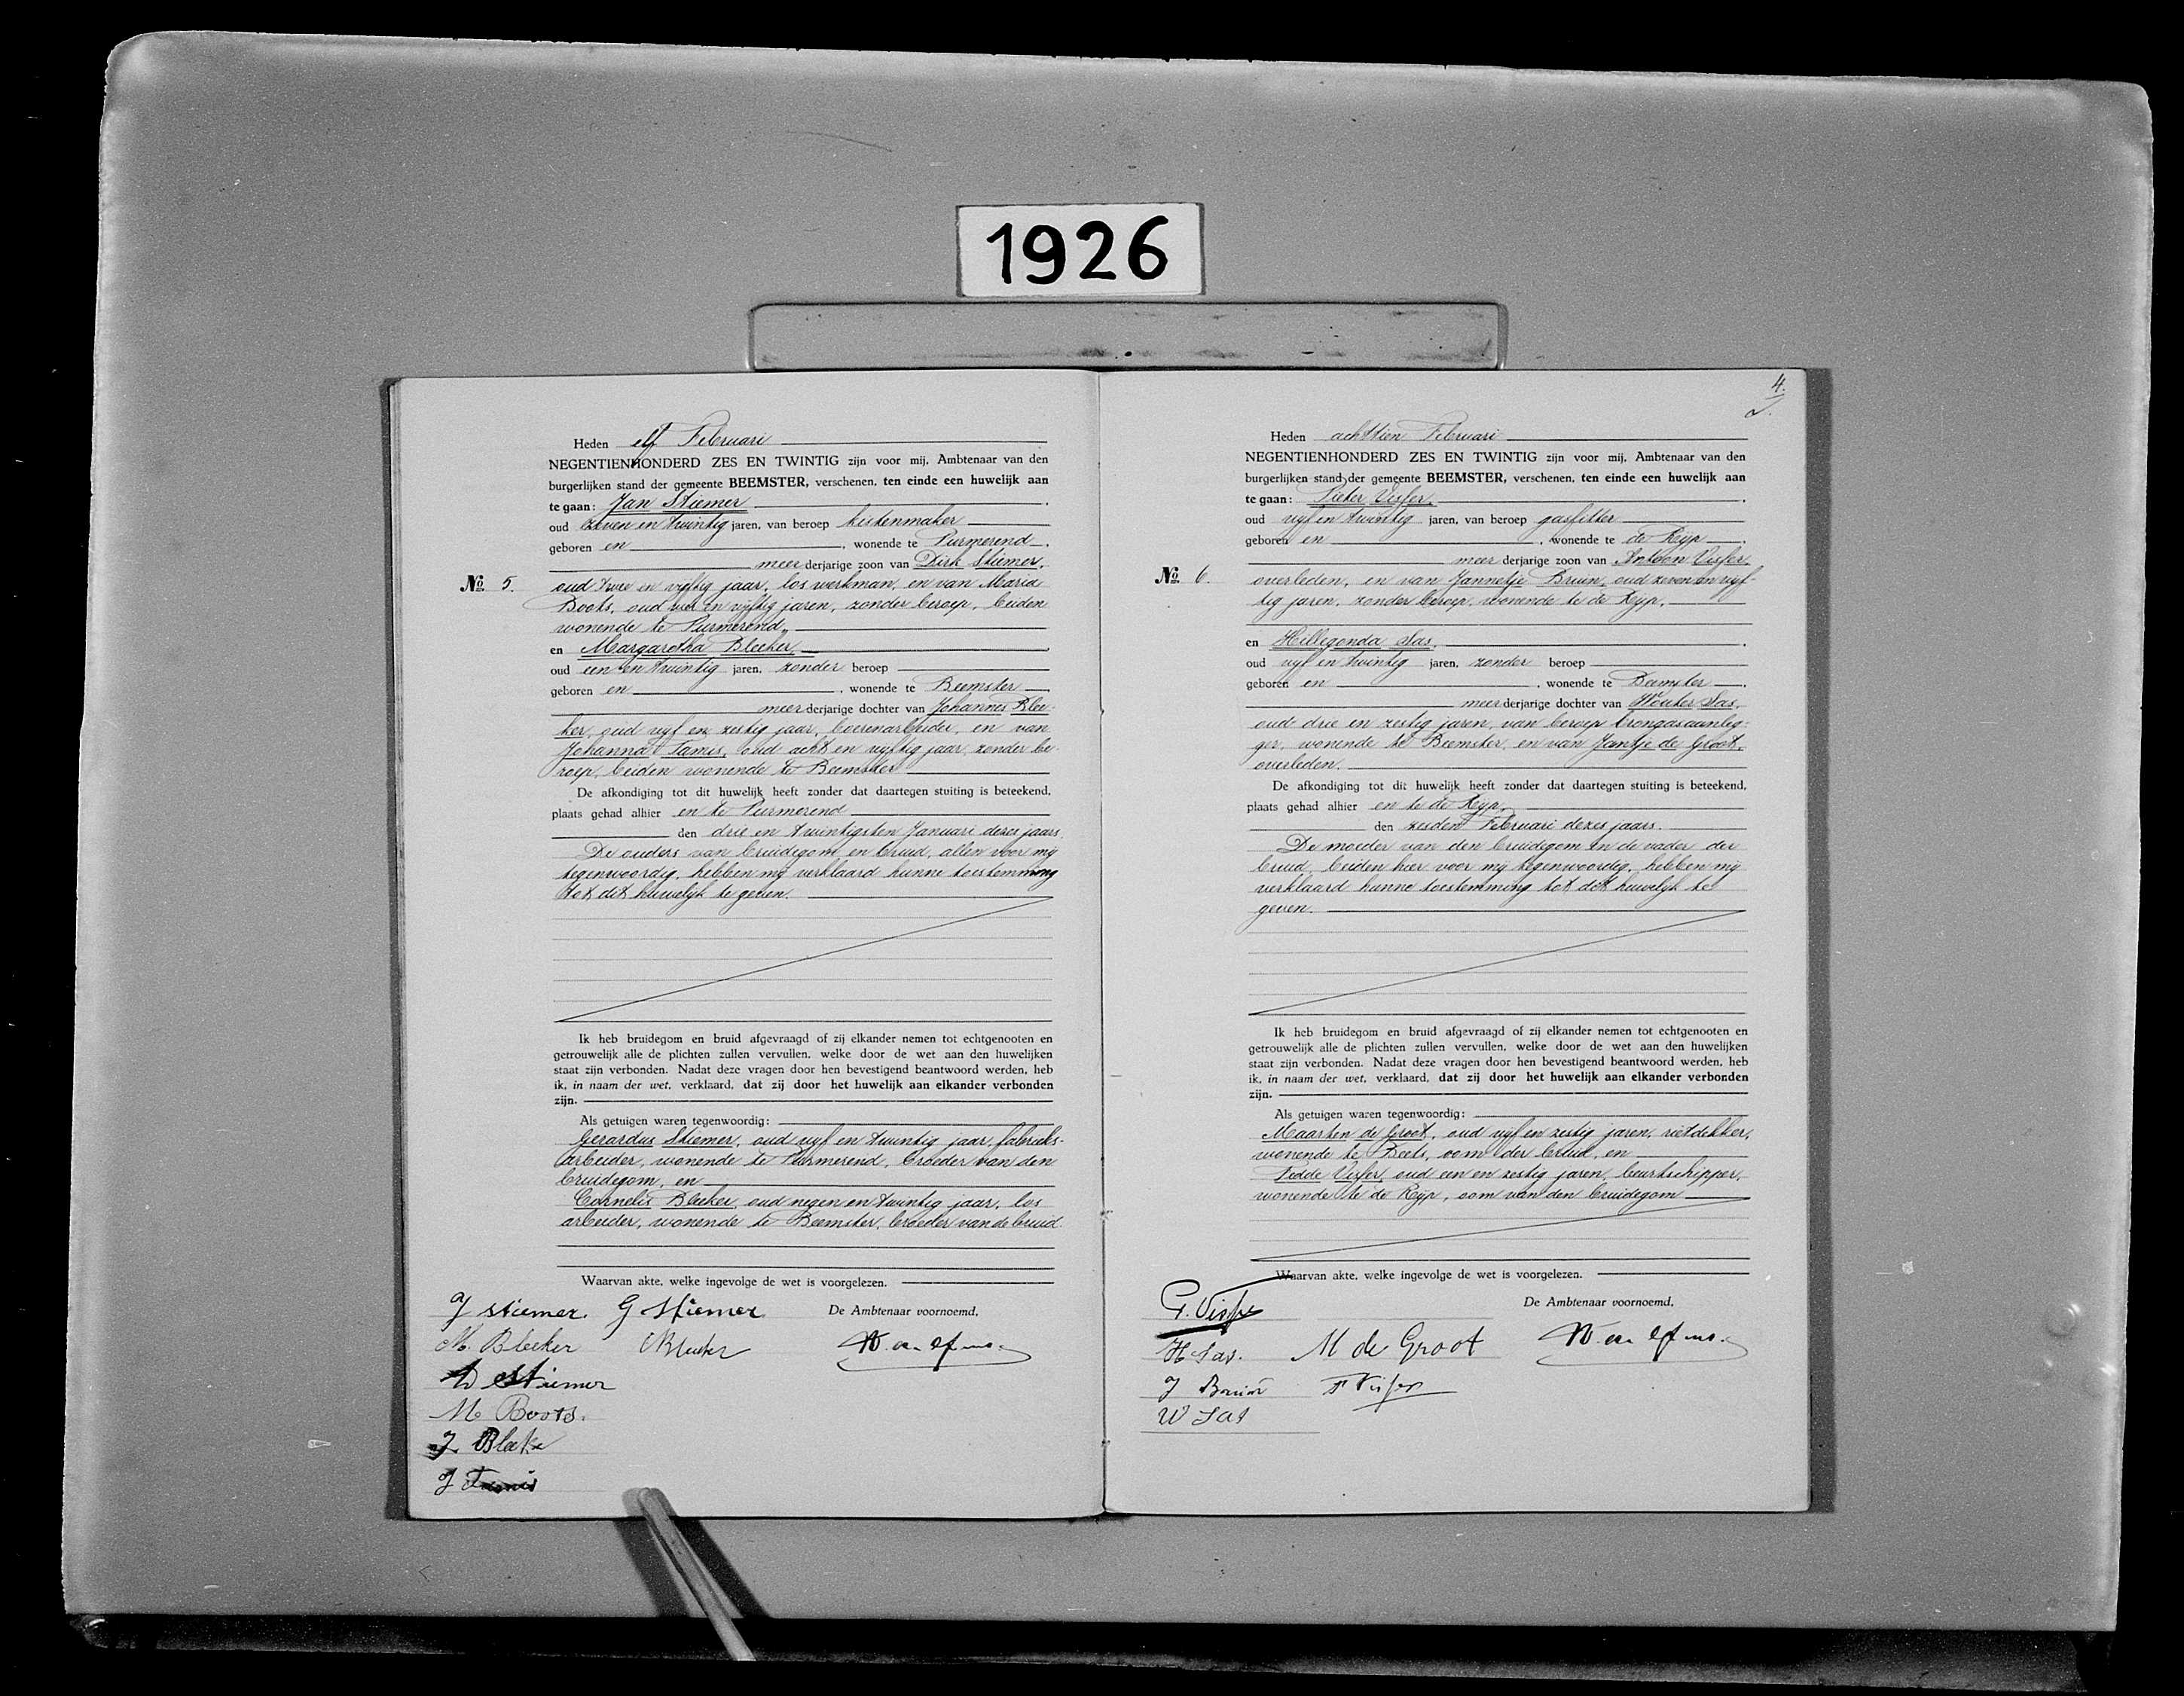 1926
Heden elf Februari
NEGENTIENHONDERD ZES EN TWINTIG zijn voor mij, Ambtenaar van den
burgerlijken stand der gemeente BEEMSTER, verschenen, ten einde een huwelijk aan
te gaan: Jan Stiemer
oud zeven en twintig jaren, van beroep kistenmaker
geboren en , wonende te Purmerend
meer derjarige zoon van Dirk Stiemer,
No 5. oud twee en vijftig jaar, los werkman, en van Maria
Boots, oud vier en vijftig jaren, zonder beroep, beiden
wonende te Purmerend,
en Margaretha Bleeker
oud een en twintig jaren, zonder beroep
geboren en , wonende te Beemster
meer derjarige dochter van Johannes Blee-
ker, oud vijf en zestig jaar, boerenarbeider, en van
Johanna Tamis, oud acht en vijftig jaar, zonder be-
roep, beiden wonende te Beemster
De afkondiging tot dit huwelijk heeft zonder dat daartegen stuiting is beteekend,
plaats gehad alhier en te Purmerend
den drie en twintigsten Januari dezes jaars.
De ouders van bruidegom en bruid, allen voor mij
tegenwoordig, hebben mij verklaard hunne toestemming
tot dit huwelijk te geven.
Ik heb bruidegom en bruid afgevraagd of zij elkander nemen tot echtgenooten en
getrouwelijk alle de plichten zullen vervullen, welke door de wet aan den huwelijken
staat zijn verbonden. Nadat deze vragen door hen bevestigend beantwoord werden, heb
ik, in naam der wet, verklaard, dat zij door het huwelijk aan elkander verbonden
zijn.
Als getuigen waren tegenwoordig:
Gerardus Stiemer, oud vijf en twintig jaar, fabrieks-
arbeider, wonende te Purmerend, broeder van den
bruidegom, en
Cornelis Bleeker, oud negen en twintig jaar, los
arbeider, wonende te Beemster, broeder van de bruid.
Waarvan akte, welke ingevolge de wet is voorgelezen.
De Ambtenaar voornoemd,
J Stiemer. G Stiemer
M. Bleeker C Bleeker
D Stiemer
M Boots.
J Bleeker
J Tamis
4.
Heden achttien Februari
NEGENTIENHONDERD ZES EN TWINTIG zijn voor mij, Ambtenaar van den
burgerlijken stand der gemeente BEEMSTER, verschenen, ten einde een huwelijk aan
te gaan: Pieter Visser,
oud vijf en twintig jaren, van beroep gasfitter
geboren en , wonende te de Rijp
meer derjarige zoon van Antoon Visser,
No 6. overleden, en van Jannetje Bruin, oud zeven en vijf-
tig jaren, zonder beroep, wonende te de Rijp,
en Hillegonda Sas,
oud vijf en twintig jaren, zonder beroep
geboren en , wonende te Beemster
meer derjarige dochter van Wouter Sas,
oud drie en zestig jaren, van beroep brongasaanleg-
ger, wonende te Beemster, en van Jantje de Groot,
overleden.
De afkondiging tot dit huwelijk heeft zonder dat daartegen stuiting is beteekend,
plaats gehad alhier en te de Rijp,
den zesden Februari dezes jaars.
De moeder van den bruidegom en de vader der
bruid, beiden hier voor mij tegenwoordig, hebben mij
verklaard hunne toestemming tot dit huwelijk te
geven.
Ik heb bruidegom en bruid afgevraagd of zij elkander nemen tot echtgenooten en
getrouwelijk alle de plichten zullen vervullen, welke door de wet aan den huwelijken
staat zijn verbonden. Nadat deze vragen door hen bevestigend beantwoord werden, heb
ik, in naam der wet, verklaard, dat zij door het huwelijk aan elkander verbonden
zijn.
Als getuigen waren tegenwoordig:
Maarten de Groot, oud vijf en zestig jaren, rietdekker,
wonende te Beets, oom der bruid, en
Fedde Visser, oud een en zestig jaren, beurtschipper,
wonende te de Rijp, oom van den bruidegom
Waarvan akte, welke ingevolge de wet is voorgelezen.
De Ambtenaar voornoemd,
P. Visser
H Sas. M de Groot
J Bruin F Visser
W Sas